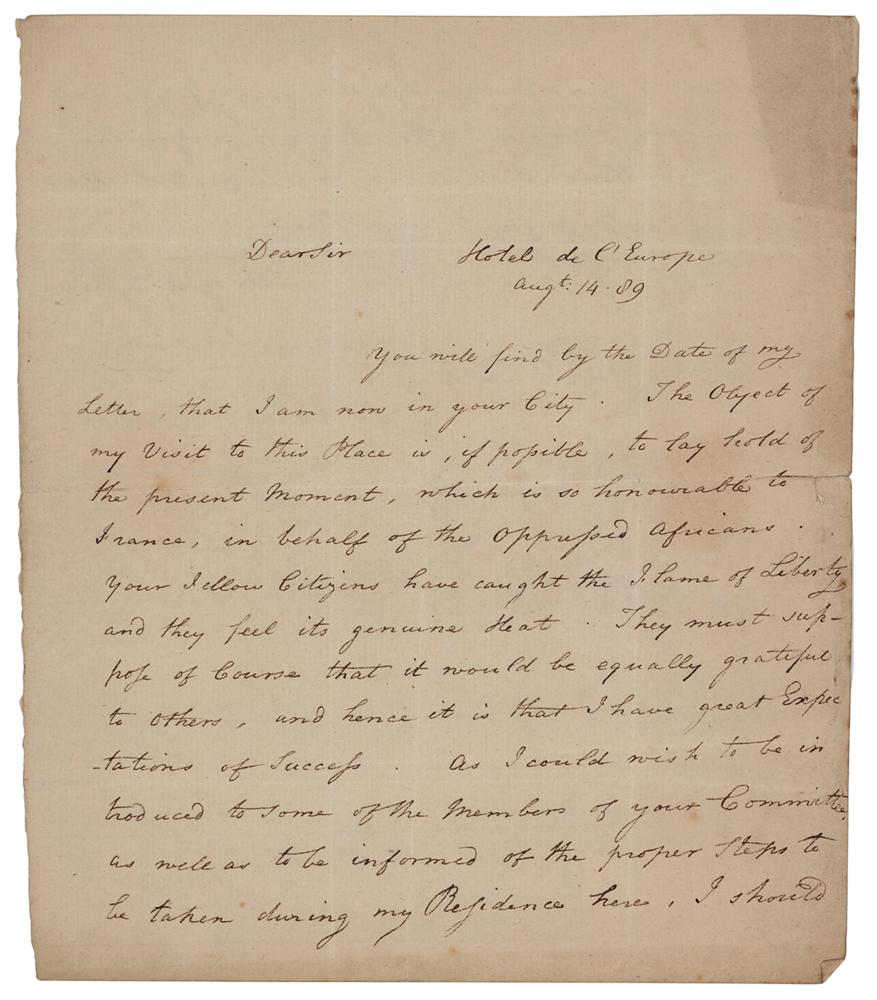 Dear Sir Hotel de L'Europe
Augt: 14. 89
You will find by the Date of my
Letter, that I am now in your City. The Object of
my Visit to this Place is, if poſsible, to lay hold of
the present Moment, which is so honourable to
France, in behalf of the Oppreſsed Africans.
Your Fellow Citizens have caught the Flame of Liberty
and they feel its genuine Heat. They must sup-
poſe of Course that it would be equally grateful
to others, and hence it is that I have great Expec
-tations of Succeſs. As I could wish to be in
troduced to some of the Members of your Committee,
as well as to be informed of the proper Steps to
be taken during my Reſidence here, I should